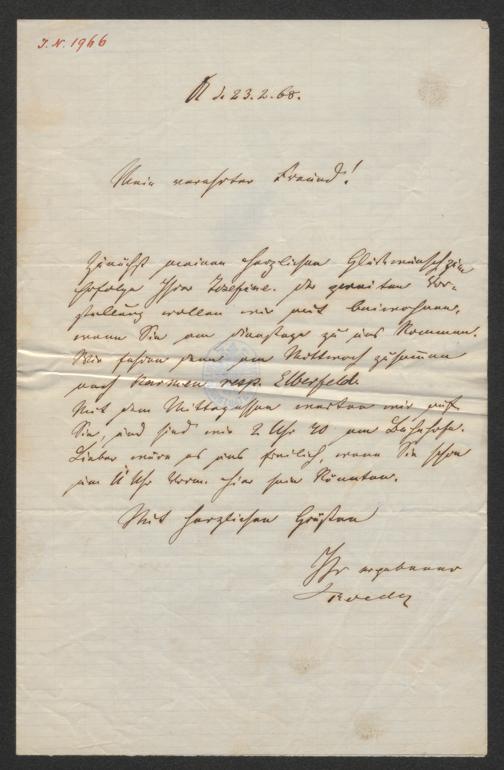 J. N. 1966
d. 23.2.68.
Mein verehrter Freund!
Zunächst meinen herzlichen Glückwunsch zum
Erfolge Ihrer Josefine. Der zweiten Vor-
stellung wollen wir mit beiwohnen,
wenn Sie am Dienstage zu uns kommen.
Wir fahren dann am Mittwoch zusammen
nach Barmen resp. Elberfeld.
Mit dem Mittagessen warten wir auf
Sie, und sind wir 2 Uhr 40 am Bahnhofe.
Lieber wäre es uns freilich, wenn Sie schon
um Uhr Vorm. hier sein könnten.
Mit herzlichen Grüßen
Ihr ergebener